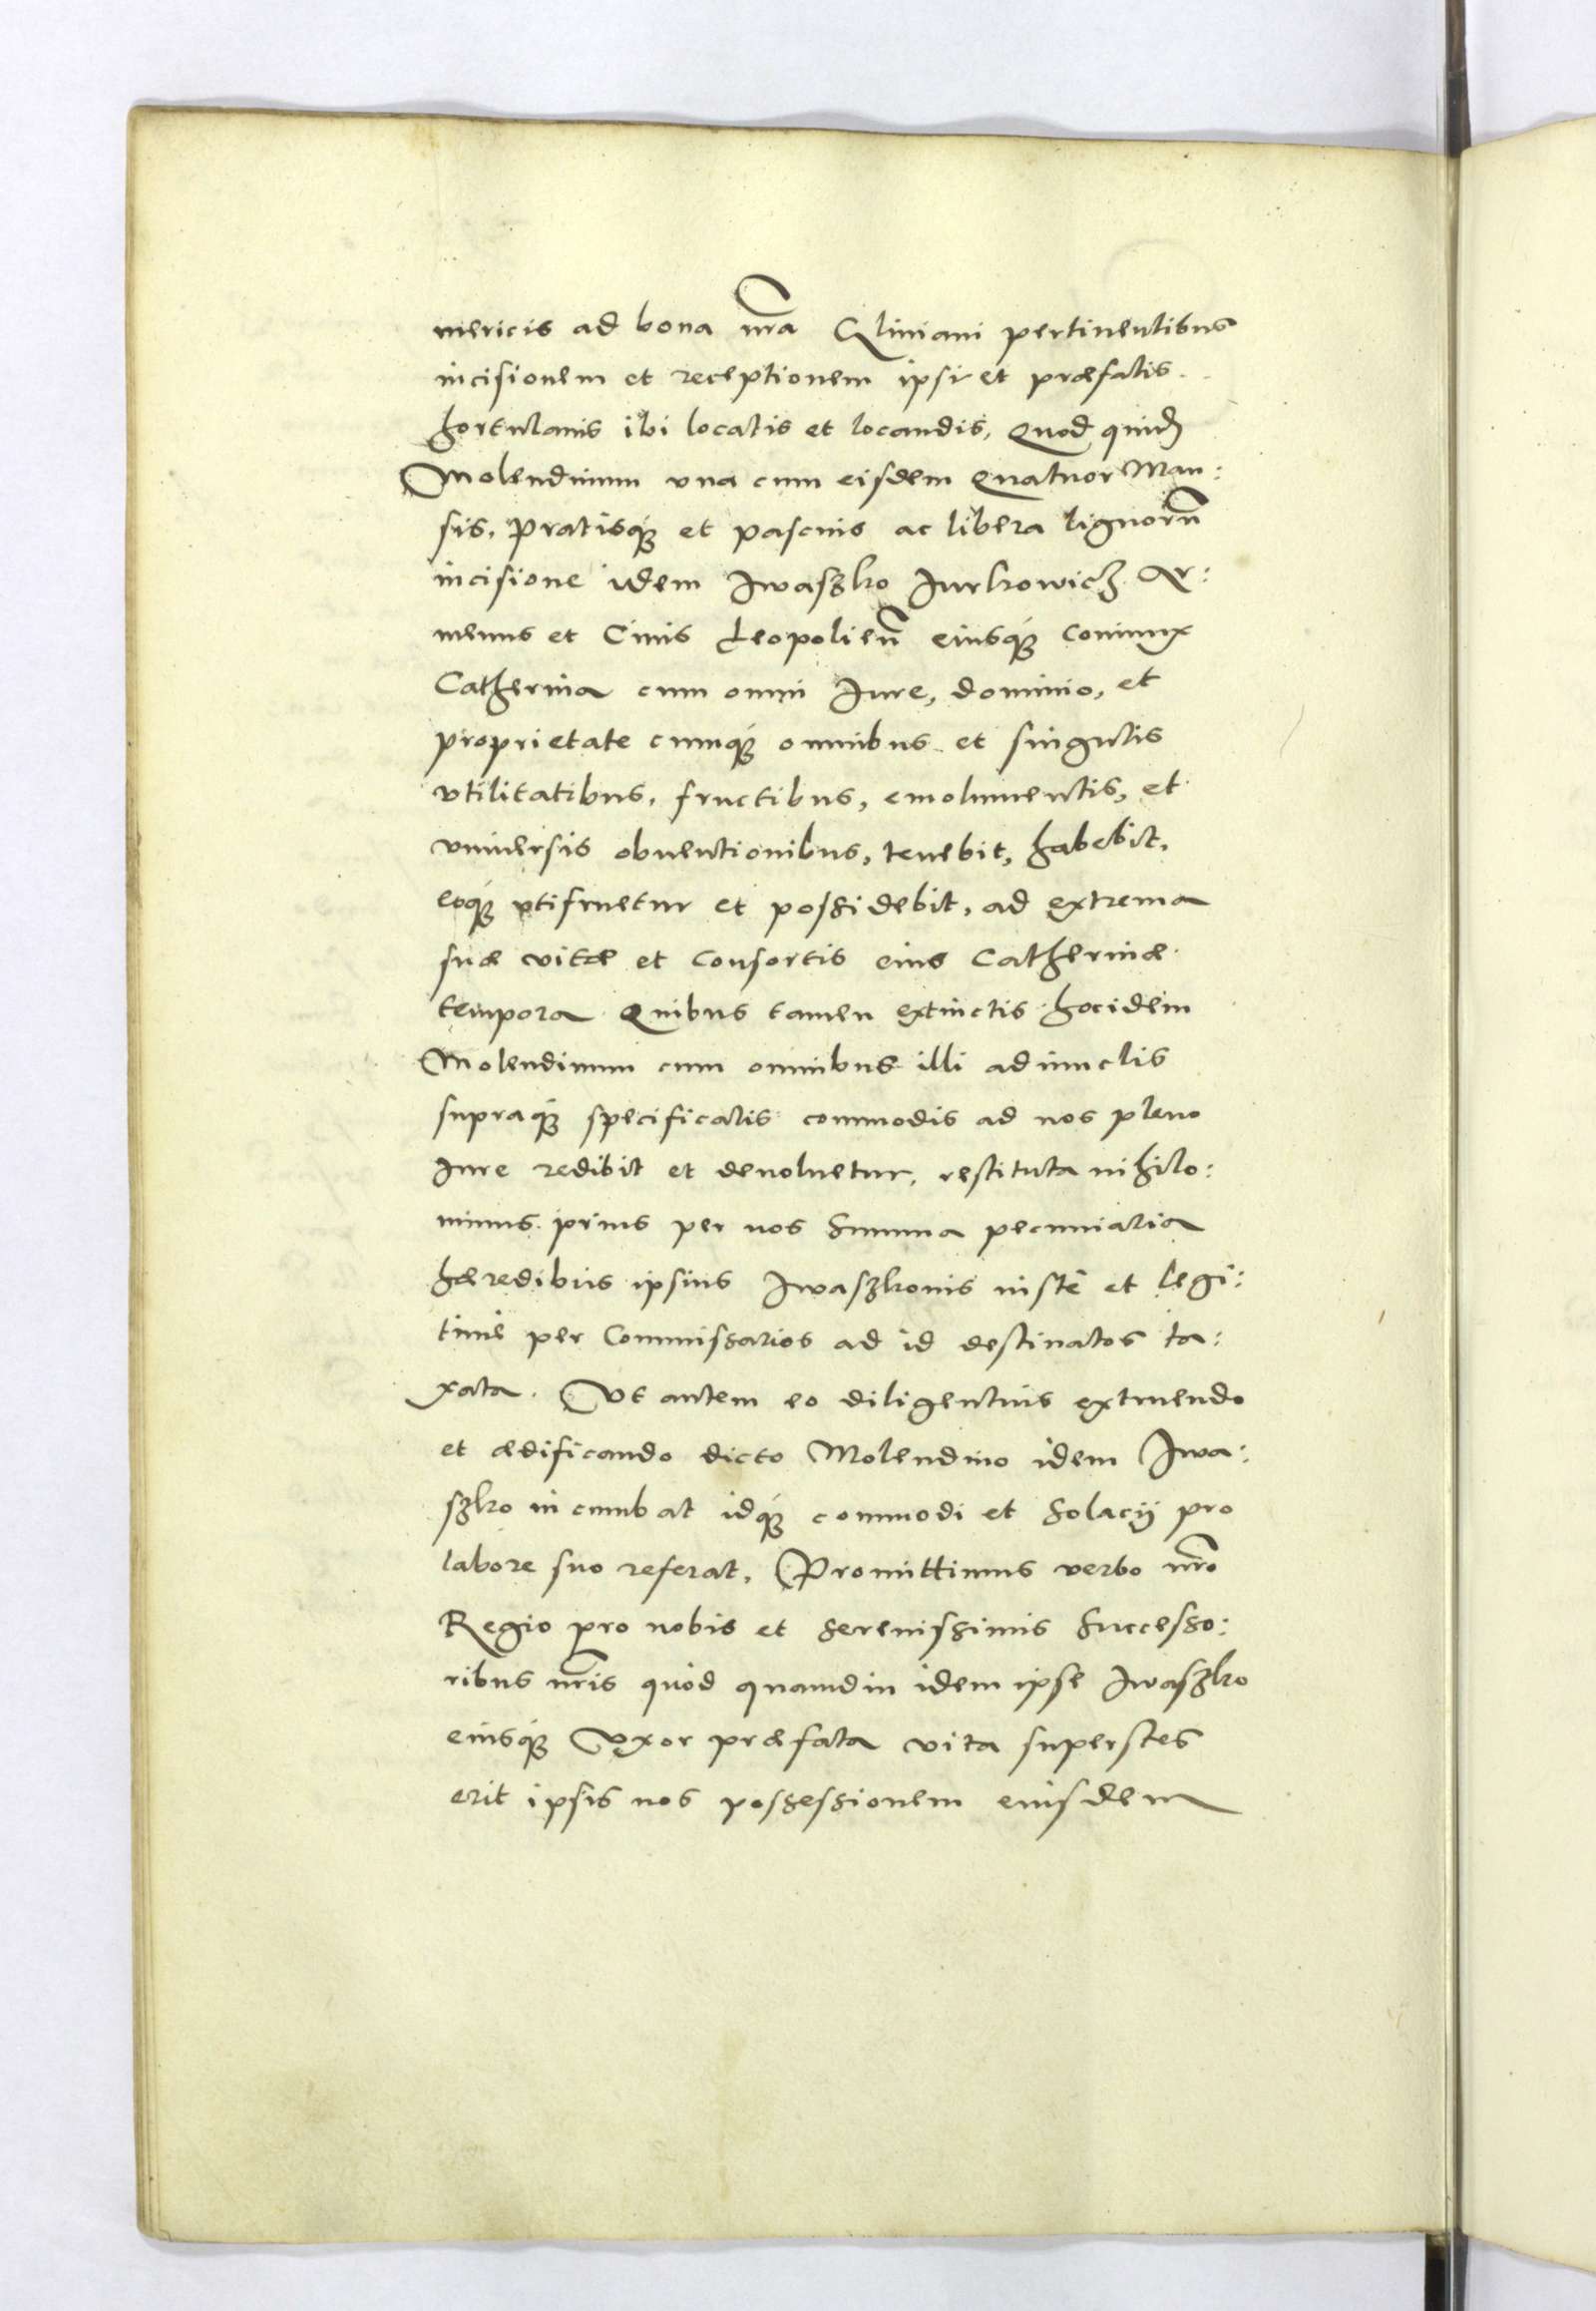 mericis ad bona nr̃a Gliniani pertinentibus
incisionem et receptionem ipsi et præfatis
hortulanis ibi locatis et locandis, Quod quidẽ
Molendinum vna cum eisdem Quatuor Man:
sis, pratisq́ꝫ et pascuis ac libera lignorũ
incisione idem Iwaszko Iurkowicz Ar:
menus et Ciuis Leopolieñ eiusq́ꝫ coniunx
Catherina cum omni Iure, dominio, et
proprietate cumq́ꝫ omnibus et singulis
vtilitatibus, fructibus, emolumentis, et
vniuersis obuentionibus, tenebit, habebit,
eoq́ꝫ vtifruetur et possidebit, ad extrema
suæ vitæ et consortis eius Catherinæ
tempora Quibus tamen extinctis hocidem
Molendinum cum omnibus illi adiunctis
supraq́ꝫ specificatis commodis ad nos pleno
Iure redibit et deuoluetur, restituta nihilo:
minus prius per nos summa pecuniaria
hæredibus ipsius Iwaszkonis iustè et legi:
timè per Commissarios ad id destinatos ta:
xata. Vt autem eo diligentius extruendo
et ædificando dicto Molendino idem Iwa:
szko incumbat idq́ꝫ commodi et solacij pro
labore suo referat, Promittimus verbo nr̃o
Regio pro nobis et serenissimis successo:
ribus nr̃is quòd quamdiu idem ipse Iwaszko
eiusq́ꝫ Vxor præfata vita superstes
erit ipsis nos possessionem eiusdem